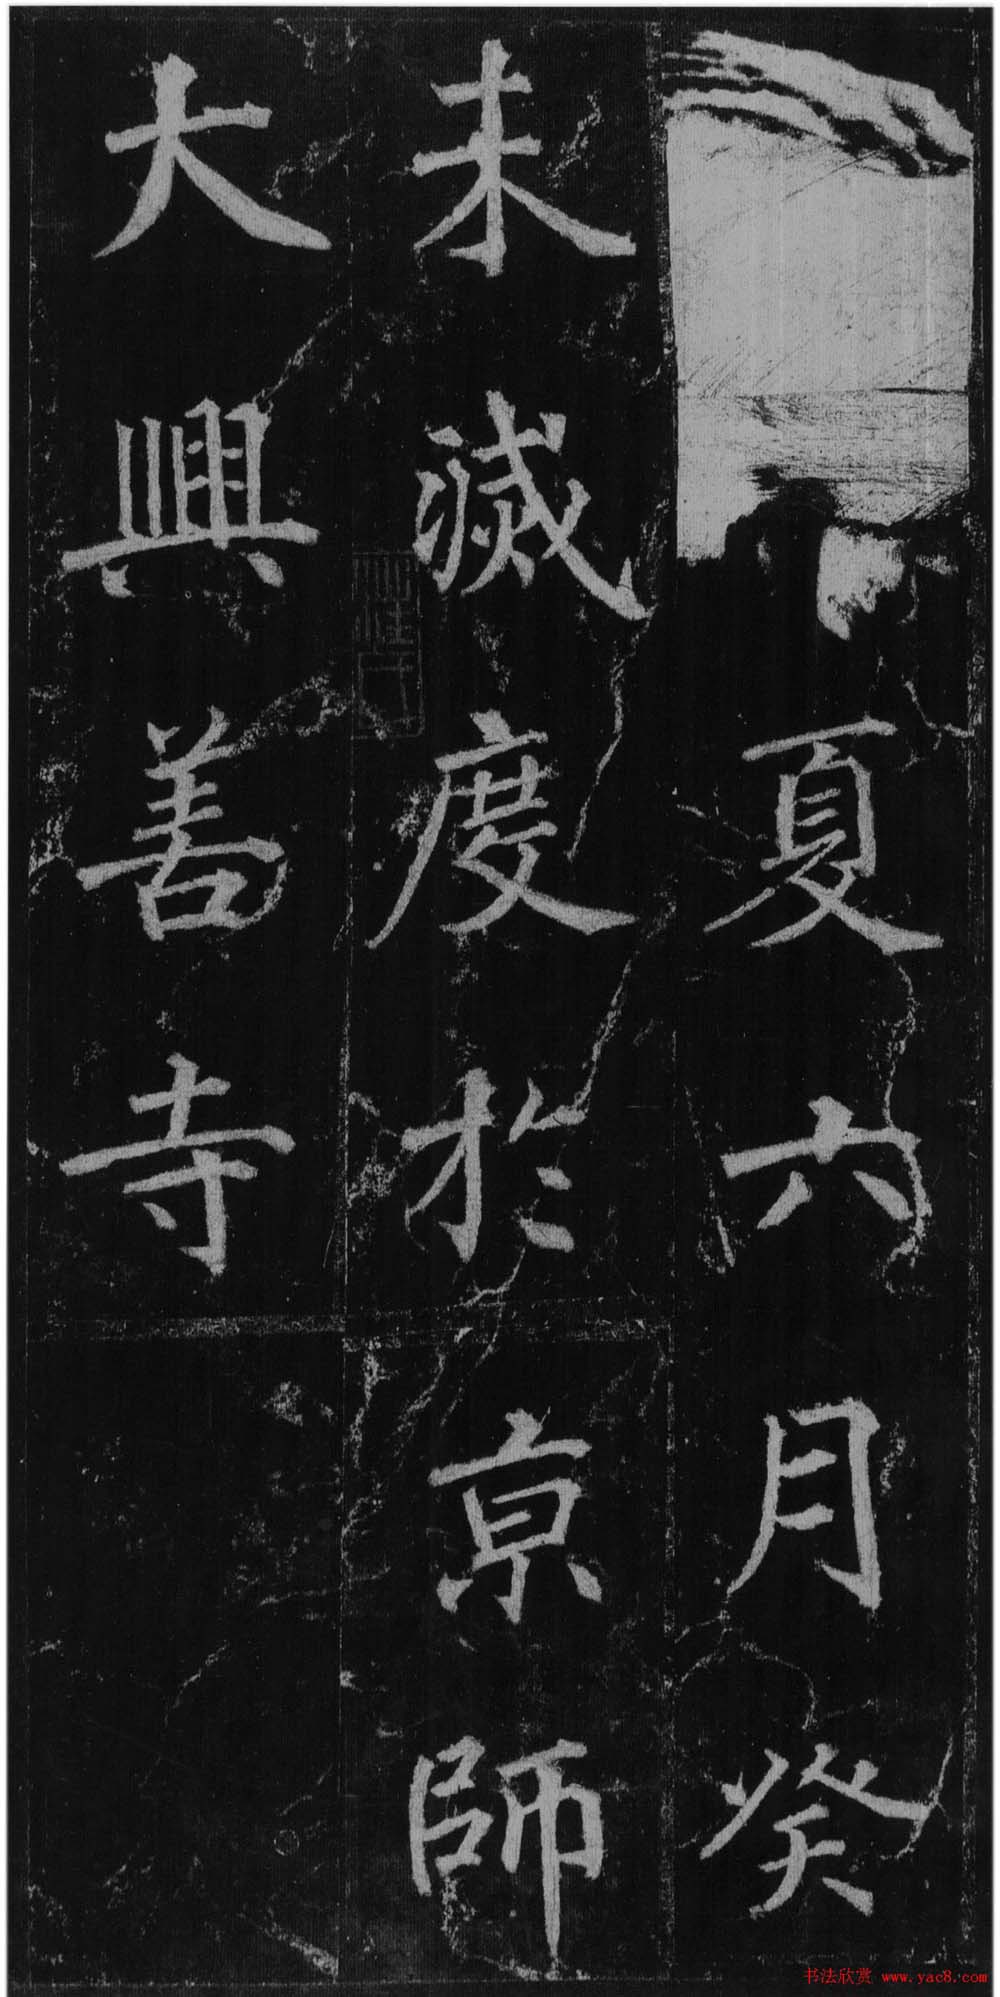 夏六月癸
未滅度於京師
大興善寺
书法欣赏 www.yac8.com